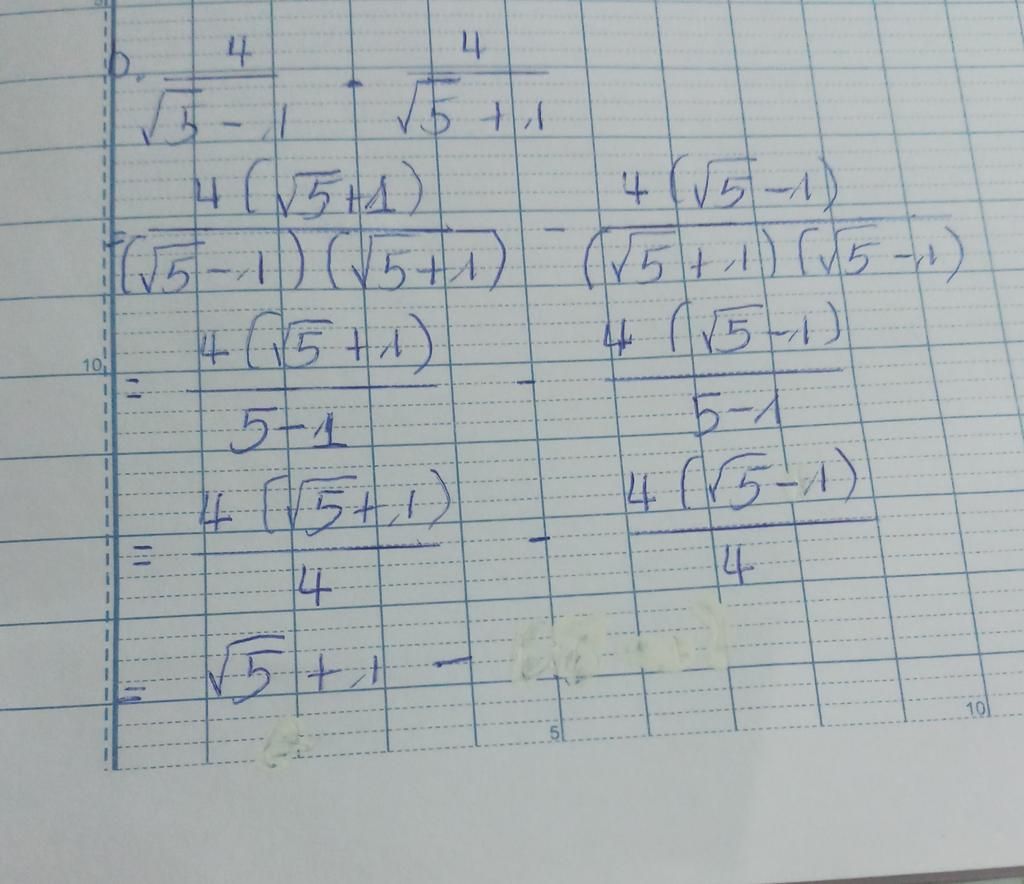 b. 4/(√5 - 1) - 4/(√5 + 1)
= 4(√5+1)/((√5 - 1)(√5+1)) - 4(√5 - 1)/((√5 + 1)(√5 - 1))
10
= 4(√5 + 1)/(5 - 1) - 4(√5 - 1)/(5 - 1)
= 4(√5 + 1)/4 - 4(√5 - 1)/4
= √5 + 1 -
5 10